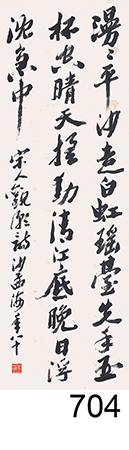 漫々平沙走白虹瑤臺失手玉
杯空晴天搖動清江底晚日浮
沈急中
宋人觀潮詩沙孟海年八十
704